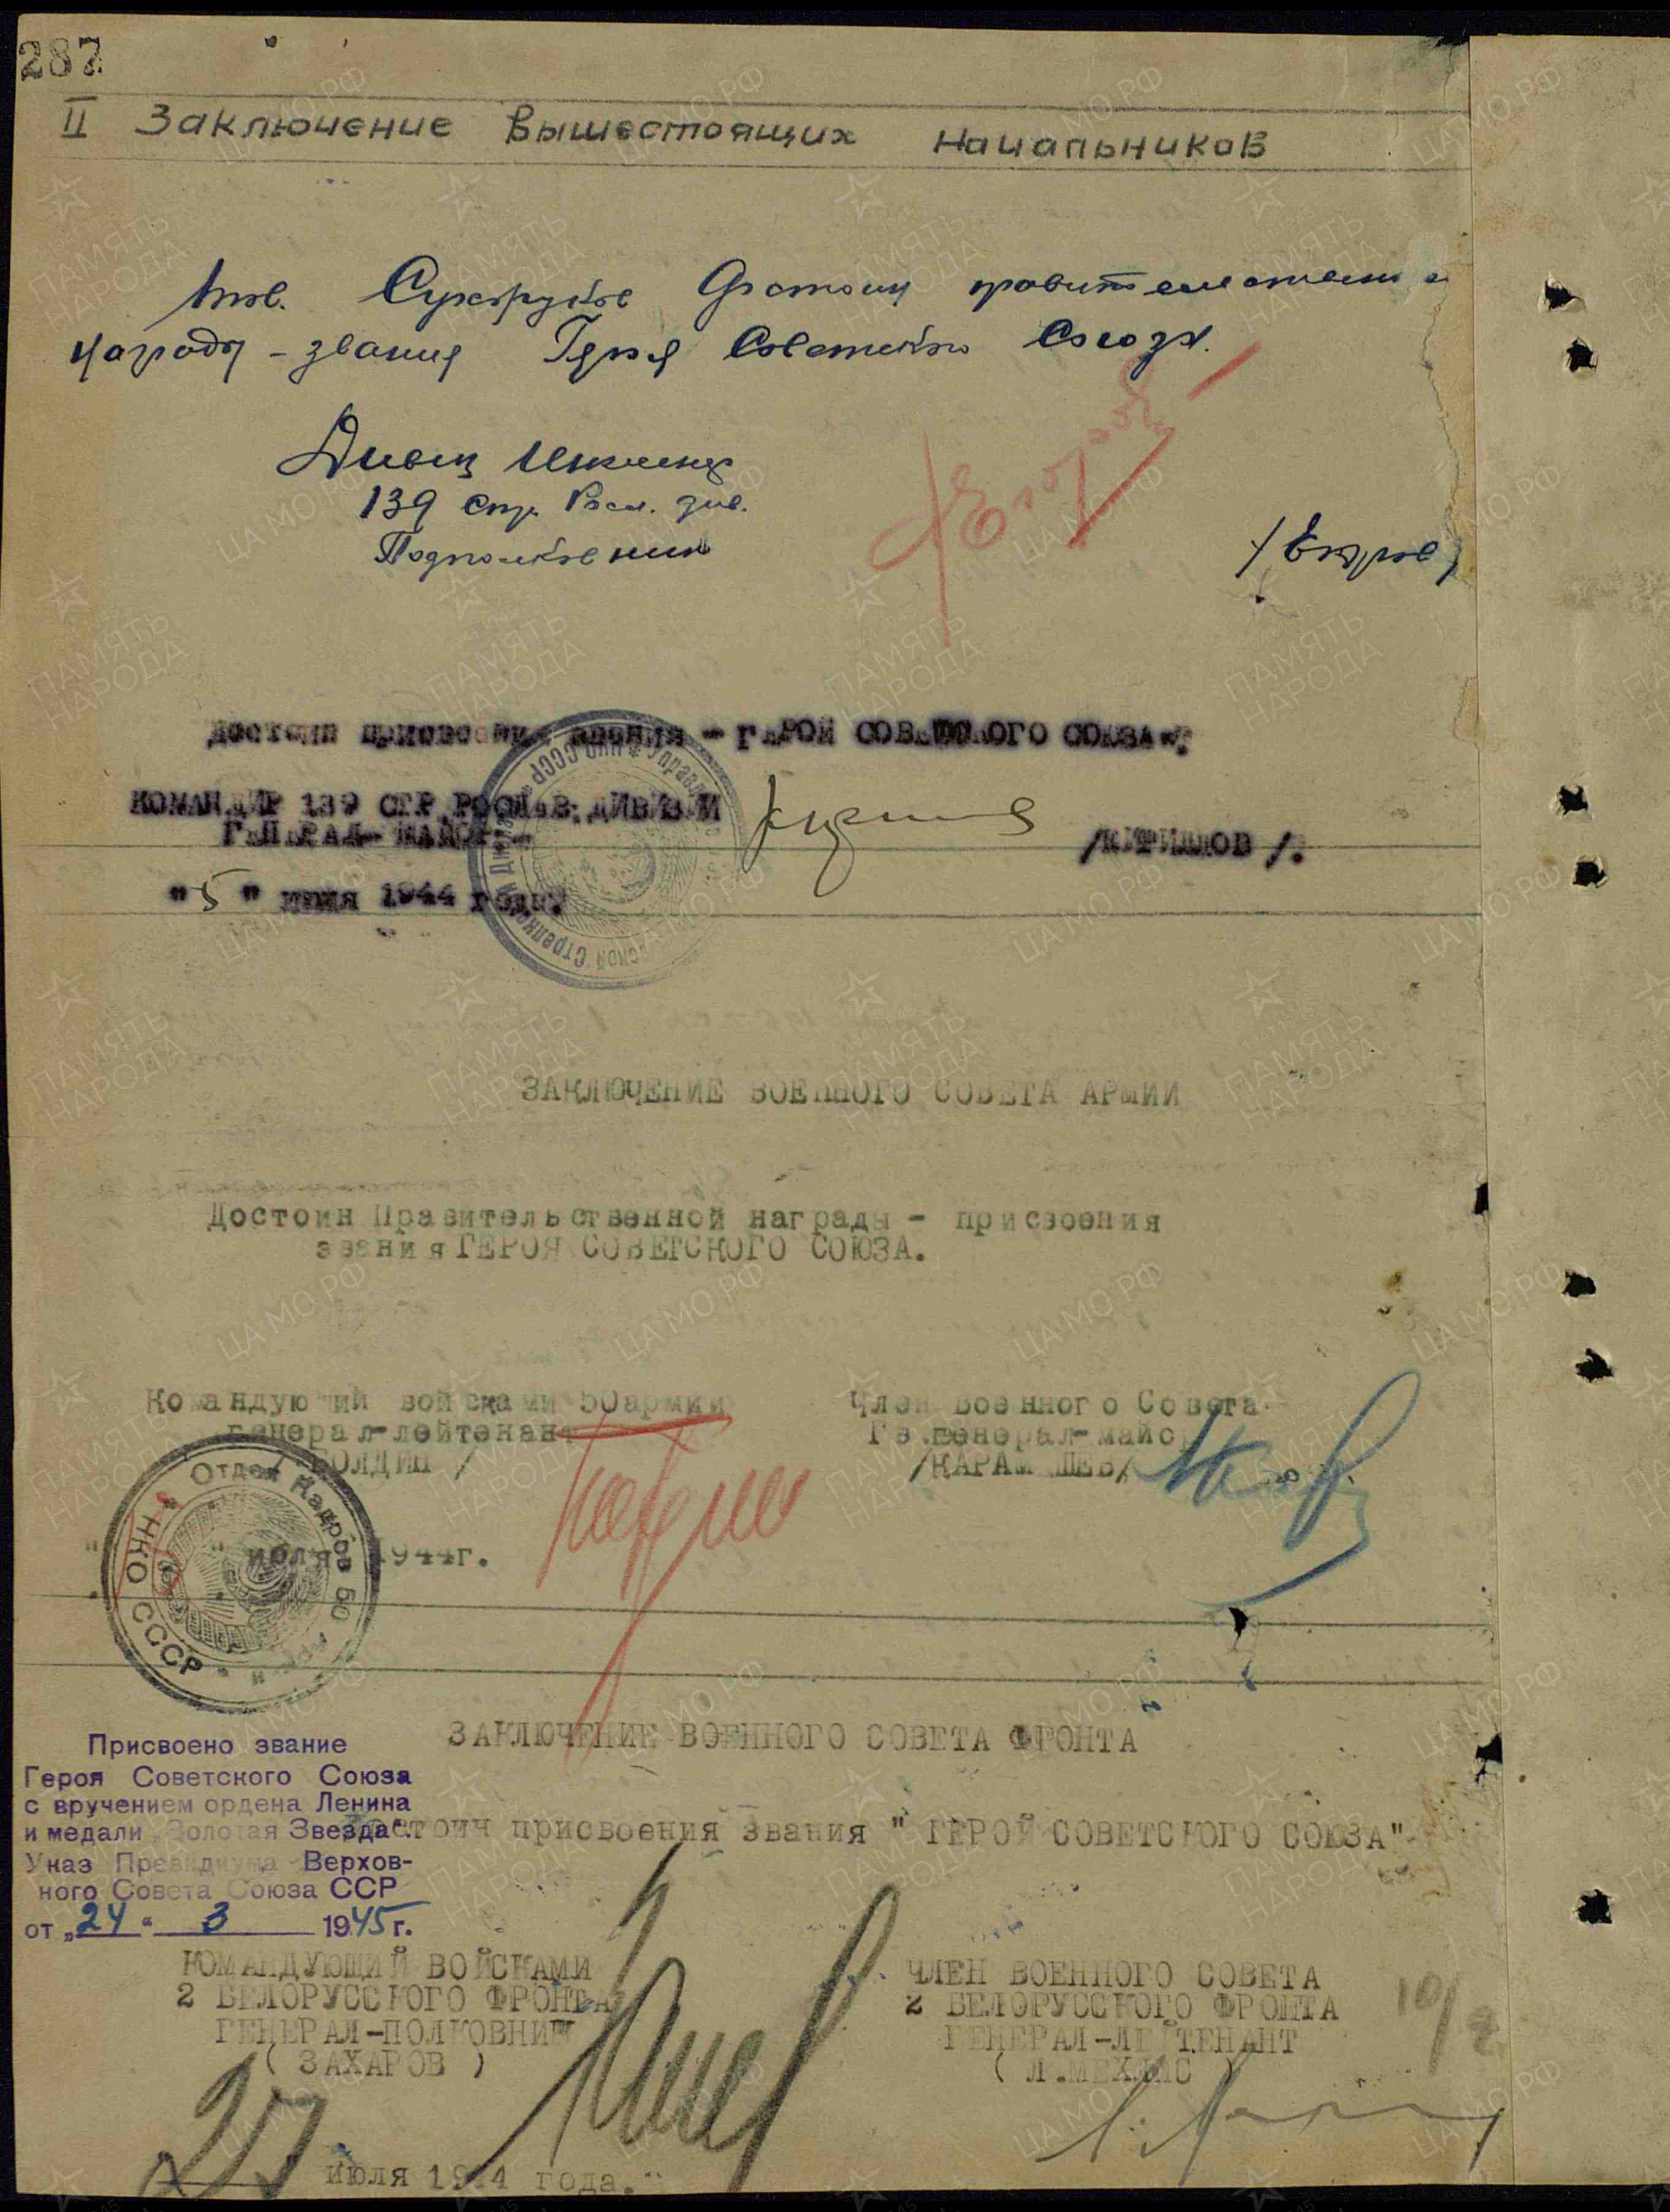 287
II Заключение Вышестоящих Начальников
тов. Сухоруков Достоин правительственной
награды - звания Героя Советского Союза.
Дивиз Инженер
139 стр. Росл. див.
Подполковник /Егоров/
достоин присвоения звания - ГЕРОЙ СОВЕТСКОГО СОЮЗА".
КОМАНДИР 139 СТР. РОСЛАВ. ДИВИЗИИ
ГЕНЕРАЛ-МАЙОР:-
/КИРИЛЛОВ/.
"5" июля 1944 года.
ЗАКЛЮЧЕНИЕ ВОЕННОГО СОВЕТА АРМИИ
Достоин Правительственной награды - присвоения
звания ГЕРОЯ СОВЕТСКОГО СОЮЗА.
Командующий войсками 50 армии Член Военного Совета
генерал-лейтенант генерал-майор
/БОЛДИН/ /КАРАМЫШЕВ/
" " июля 1944г.
Отдел Кадров 50 НКО СССР
ЗАКЛЮЧЕНИЕ ВОЕННОГО СОВЕТА ФРОНТА
Достоин присвоения звания "ГЕРОЙ СОВЕТСКОГО СОЮЗА"
Присвоено звание
Героя Советского Союза
с вручением ордена Ленина
и медали „Золотая Звезда".
Указ Президиума Верхов-
ного Совета Союза ССР
от „24" 3 1945 г.
КОМАНДУЮЩИЙ ВОЙСКАМИ ЧЛЕН ВОЕННОГО СОВЕТА
2 БЕЛОРУССКОГО ФРОНТА 2 БЕЛОРУССКОГО ФРОНТА
ГЕНЕРАЛ-ПОЛКОВНИК ГЕНЕРАЛ-ЛЕЙТЕНАНТ
( ЗАХАРОВ ) ( Л.МЕХЛИС )
июля 1944 года.
ПАМЯТЬ НАРОДА
ЦА МО РФ